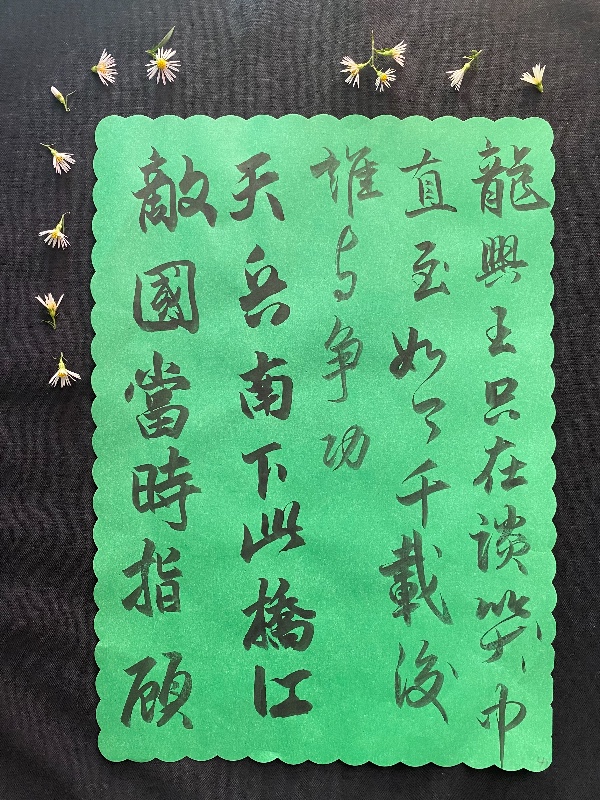 龍興王只在談笑中
直至如今千載後
誰与争功
天兵南下此橋江
敵國當時指顧